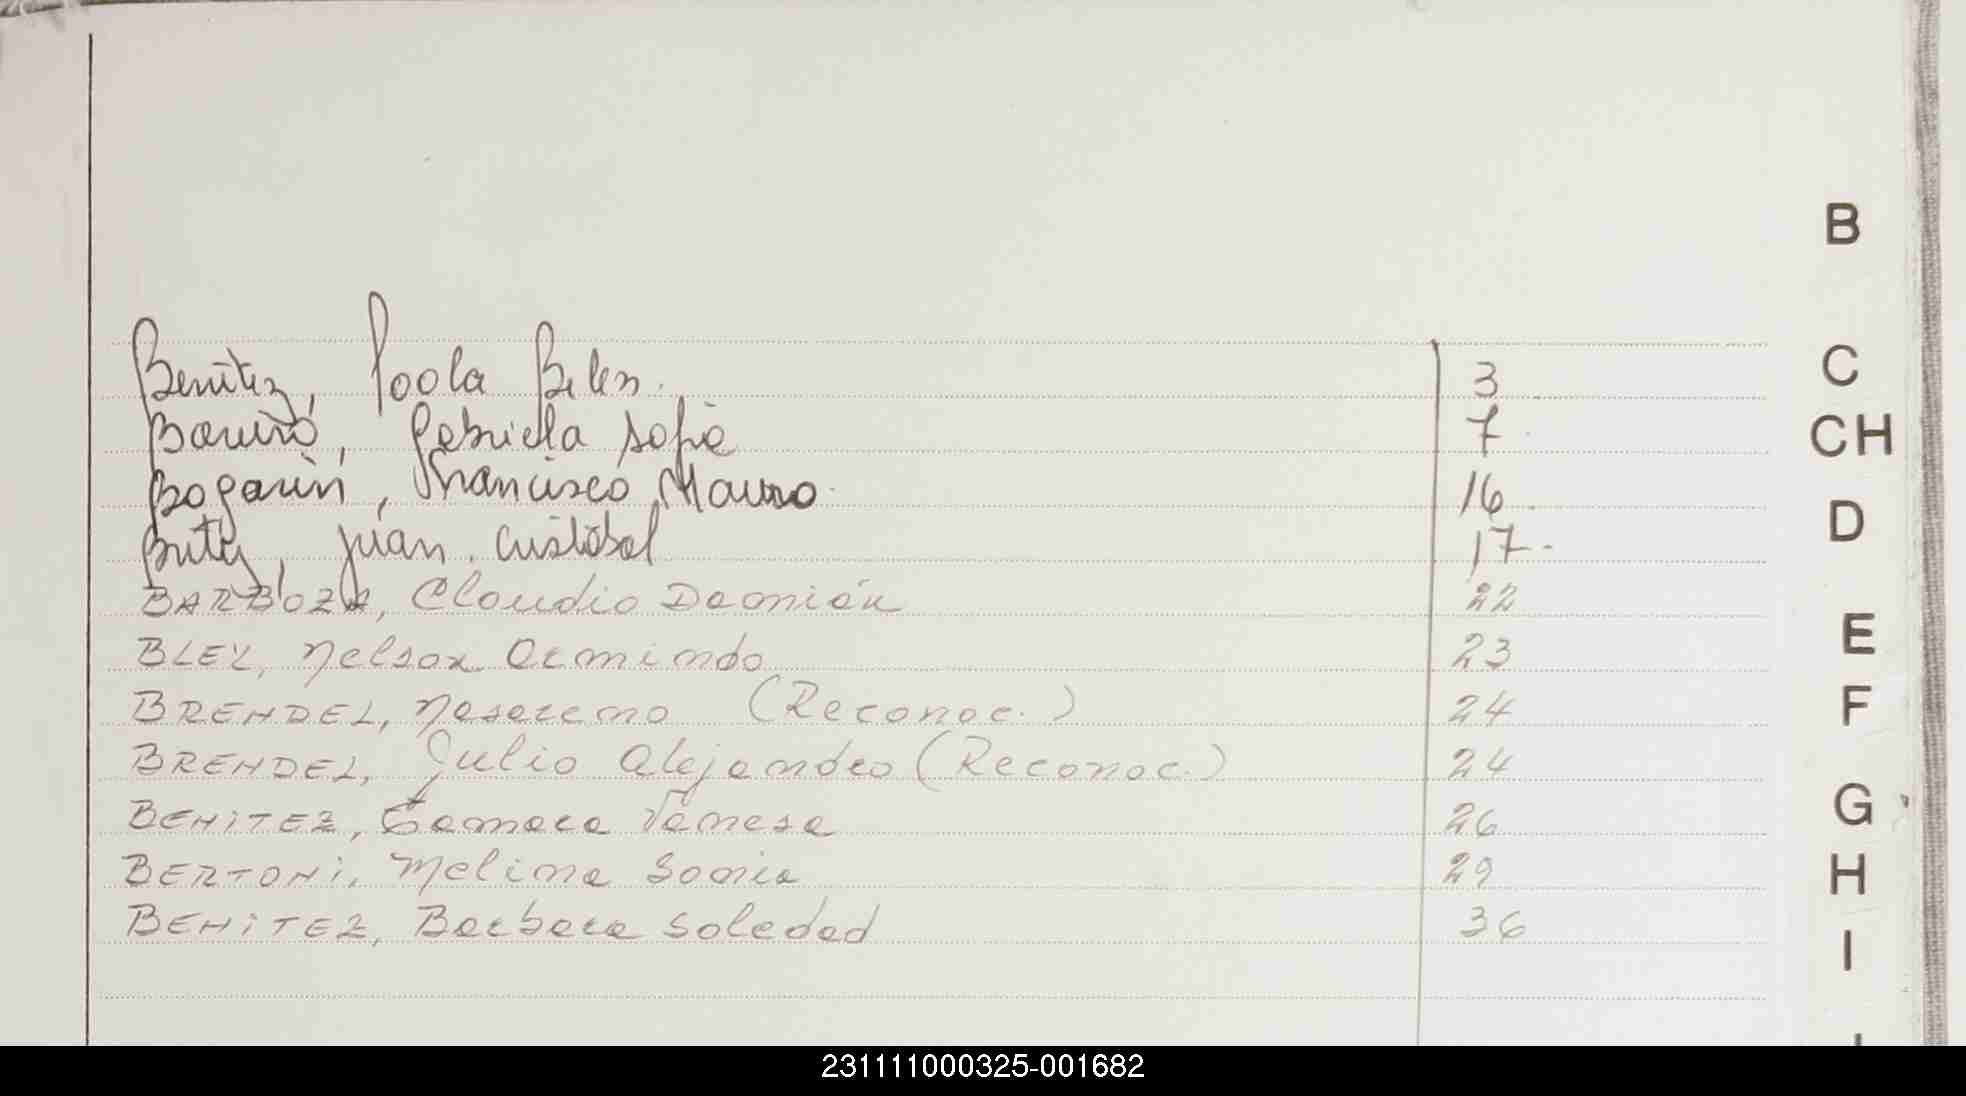 B
Benitez, Paola Belen. 3
Gabriela Sofia 7
Bogarin, Francisco Mauro. 16
Juan Cristobal 17.
BARBOZA, Claudio Damián 22
BLEY, Nelson Armindo 23
BRENDEL, Nazareno (Reconoc.) 24
BRENDEL, Julio Alejandro (Reconoc.) 24
BENITEZ, Tamara Vanesa 26
BERTONI, Melina Sonia 29
BENITEZ, Barbara Soledad 36
C
CH
D
E
F
G
H
I
231111000325-001682